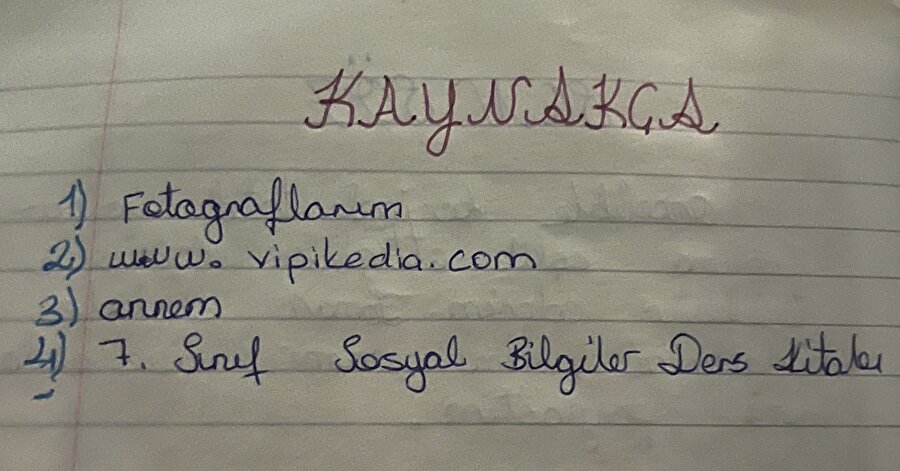 KAYNAKÇA
1) Fotograflarım
2) www. vipikedia.com
3) annem
4) 7. Sınıf Sosyal Bilgiler Ders Kitabı